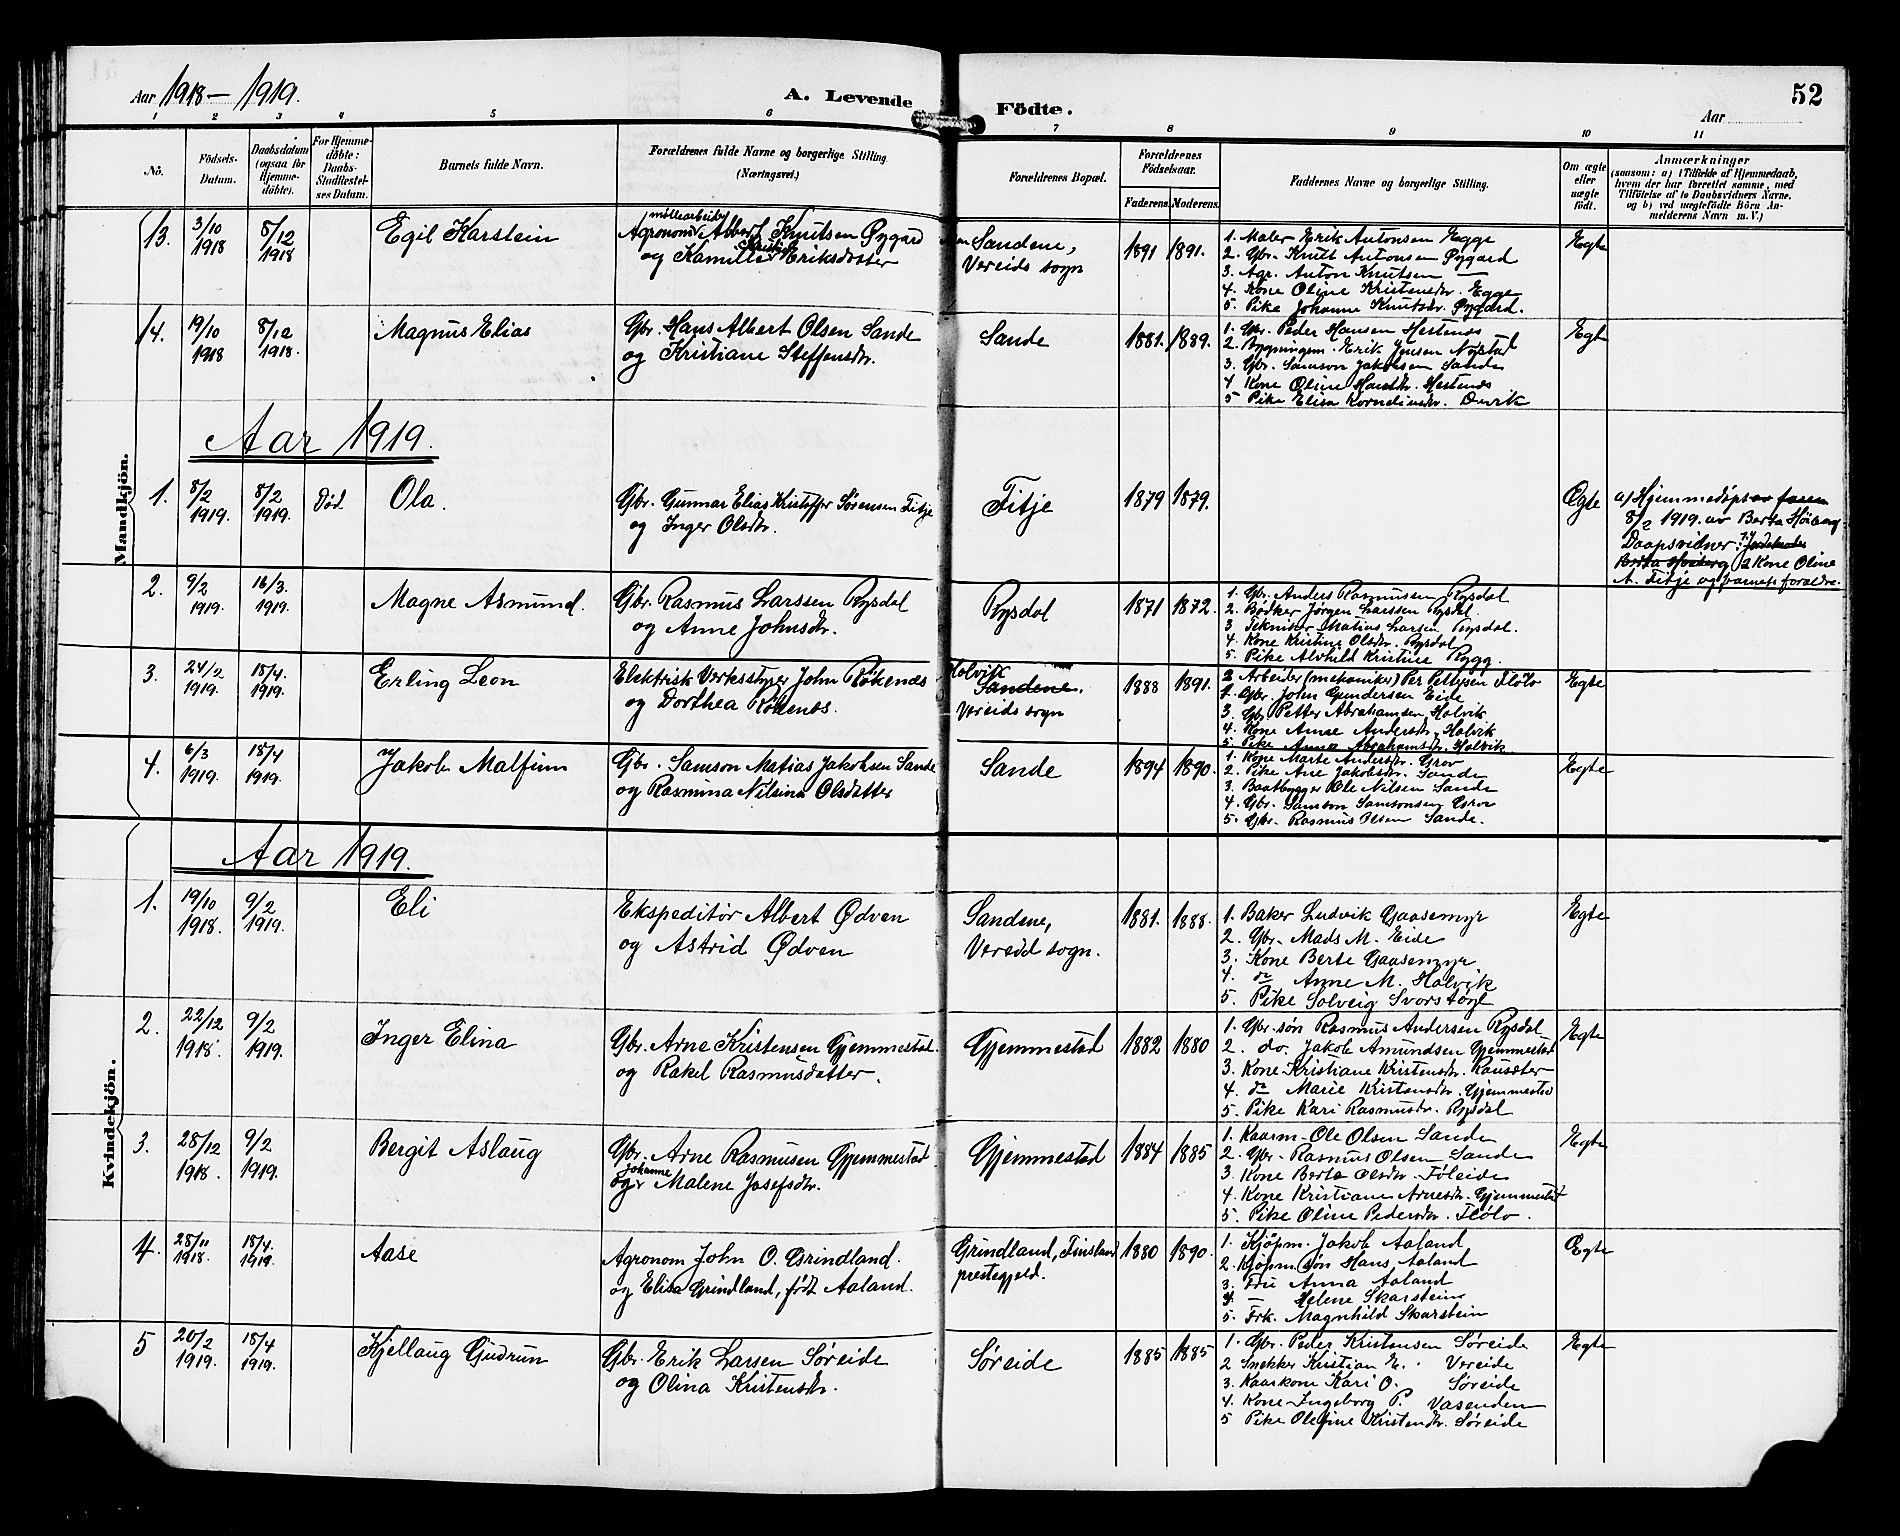 Aar 1918–1919.
A. Levende Födte.
Aar
52
1 2 3 4 5 6 7 8 9 10 11
No.
Födsels-Datum.
Daabsdatum (ogsaa for Hjemme-döbte).
For Hjemme-döbte: Daabs-Stadfæstel-ses Datum.
Barnets fulde Navn.
Forældrenes fulde Navne og borgerlige Stilling. (Næringsvei.)
Forældrenes Bopæl.
Forældrenes Födselsaar.
Faderens. Moderens.
Faddernes Navne og borgerlige Stilling.
Om ægte eller uægte födt.
Anmærkninger
(saasom: a) i Tilfælde af Hjemmedaab, hvem der har forrettet samme, med Tilföielse af to Daabsvidners Navne, og b) ved uægtefödte Börn An-melderens Navn m. V.)
Mandkjön.
13. 3/10 1918 8/12 1918 Egil Karstein
møllearbeider
Agronom Albert Knutsen Øygard
og Kamilla Kristine Eriksdatter
Sandene,
Vereids sogn
1891 1891.
1. Maler Erik Antonsen Egge
2. Gbr. Knut Antonsen Øygard
3. Agr. Anton Knutsen —
4. Kone Oline Kristensdr. Egge
5. Pike Johanne Knutsdr. Øygard.
Egte
14. 19/10 1918 8/12 1918. Magnus Elias
Gbr. Hans Albert Olsen Sande
og Kristiane Steffensdr.
Sande
1881. 1889.
1. Gbr. Peder Hansen Hestenes
2. Bygningsm. Erik Jensen Nystad
3. Gbr. Samson Jakobsen Sande
4 Kone Oline Hansdr. Hestenes
5 Pike Elisa Korneliusdr.
Egte
Aar 1919.
1. 8/2 1919. 8/2 1919. Død Ola.
Gbr. Gunnar Elias Kristoffer Sørensen Fitje
og Inger Olsdr.
Fitje
1879 1879.
Øgte
a) Hjemmedøpt av faren
8/2 1919. av Berta Høiberg
Daapsvidner: 1) Jordemoder
Berta Høiberg 2 Kone Oline
A. Fitje og barnets forældre.
2. 9/2 1919. 16/3. 1919. Magne Asmund.
Gbr. Rasmus Larssen Rysdal
og Anne Johnsdr.
Rysdal
1871 1872.
1. Gbr. Anders Rasmussen Rysdal
2. Bødker Jørgen Larssen Rysdal.
3 Tekniker Matias Larsen Rysdal.
4. Kone Kristine Olsdr. Rysdal
5. Pike Alvhild Kristine Rygg.
3. 24/2 1919. 18/4. 1919. Erling Leon
Elektrisk Verksstyrer John Røkenes
og Dorthea Røkenes.
Holvik
Sandene.
Vereids sogn
1888 1891.
2 Arbeider (mekaniker) Per Pettersen Flølo
1. Gbr. John Gundersen Eide
3. Gbr Petter Abrahamsen Holvik
4. Kone Anne Andersdr. Holvik
5. Pike Anna Abrahamsdr. Holvik.
Egte
4. 6/3 1919. 18/4 1919. Jakob Malfinn
Gbr. Samson Matias Jakobsen Sande
og Rasmina Nilsina Olsdatter
Sande
1894 1890.
1. Kone Marte Andersdr. Grov
2. Pike Ane Jakobsdr. Sande
3. Baatbygger Ole Nilsen Sande
4. Gbr. Samson Samsonsen Grov
5. Gbr. Rasmus Olsen Sande.
Egte
Kvindekjön.
Aar 1919.
1. 19/10 1918. 9/2 1919. Eli
Ekspeditör Albert Ødven
og Astrid Ødven
Sandene,
Vereid sogn.
1881. 1888.
1. Baker Ludvik Gaasemyr
2. Gbr. Mads M. Eide
3. Kone Berte Gaasemyr
4. do Anne M. Holvik
5. Pike Solveig Svorstøyl
Egte
2. 22/12 1918. 9/2 1919. Inger Elina
Gbr. Arne Kristensen Gjemmestad.
og Rakel Rasmusdatter.
Gjemmestad
1882 1880
1. Gbr.søn Rasmus Andersen Rysdal
2. do. Jakob Amundsen Gjemmestad
3. Kone Kristiane Kristensdr. Raussæter
4. do Marie Kristensdr. Gjemmestad
5. Pike Kari Rasmusdr. Rysdal
Egte
3. 28/12 1918. 9/2 1919. Bergit Aslaug
Gbr. Arne Rasmusen Gjemmestad
og Johanne Malene Josefsdr.
Gjemmestad
1884 1885
1. Kaarm. Ole Olsen Sande
2. Gbr. Rasmus Olsen Sande
3. Kone Berte Olsdr. Føleide
4. Kone Kristiane Arnesdr. Gjemmestad
5. Pike Oline Pedersdr. Flølo.
Egte
4. 28/11 1918. 18/4. 1919. Aase
Agronom John O. Grindland.
og Elisa Grindland, født Aaland.
Grindland, Finsland
prestegjeld.
1880 1890.
1. Kjøpm. Jakob Aaland
2. Kjøpm.søn Hans Aaland
3. Fru Anna Aaland
4. — Helene Skarstein
5. Frk. Magnhild Skarstein
Øgte
5 20/2 1919. 18/4 1919. Kjellaug Gudrun
Gbr. Erik Larsen Søreide
og Olina Kristensdr.
Søreide
1885 1885
1. Gbr. Peder Kristensen Søreide
2 Snekker Kristian E. Vereide
3. Kaarkone Kari O. Søreide
4. Kone Ingeborg P. Vasenden
5 Pike Olefine Kristensdr. Søreide
Egte